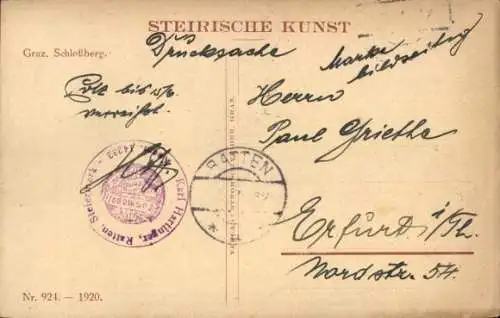 STEIRISCHE KUNST
Graz. Schloßberg.
Drucksache
Marke
bildseitig
Herrn
Paul Griethe
Erfurt i/Th.
Nordstr. 54.
bis
verreist.
Karl Haringer, Ratten, Steiermark
RATTEN
Nr. 924. — 1920.